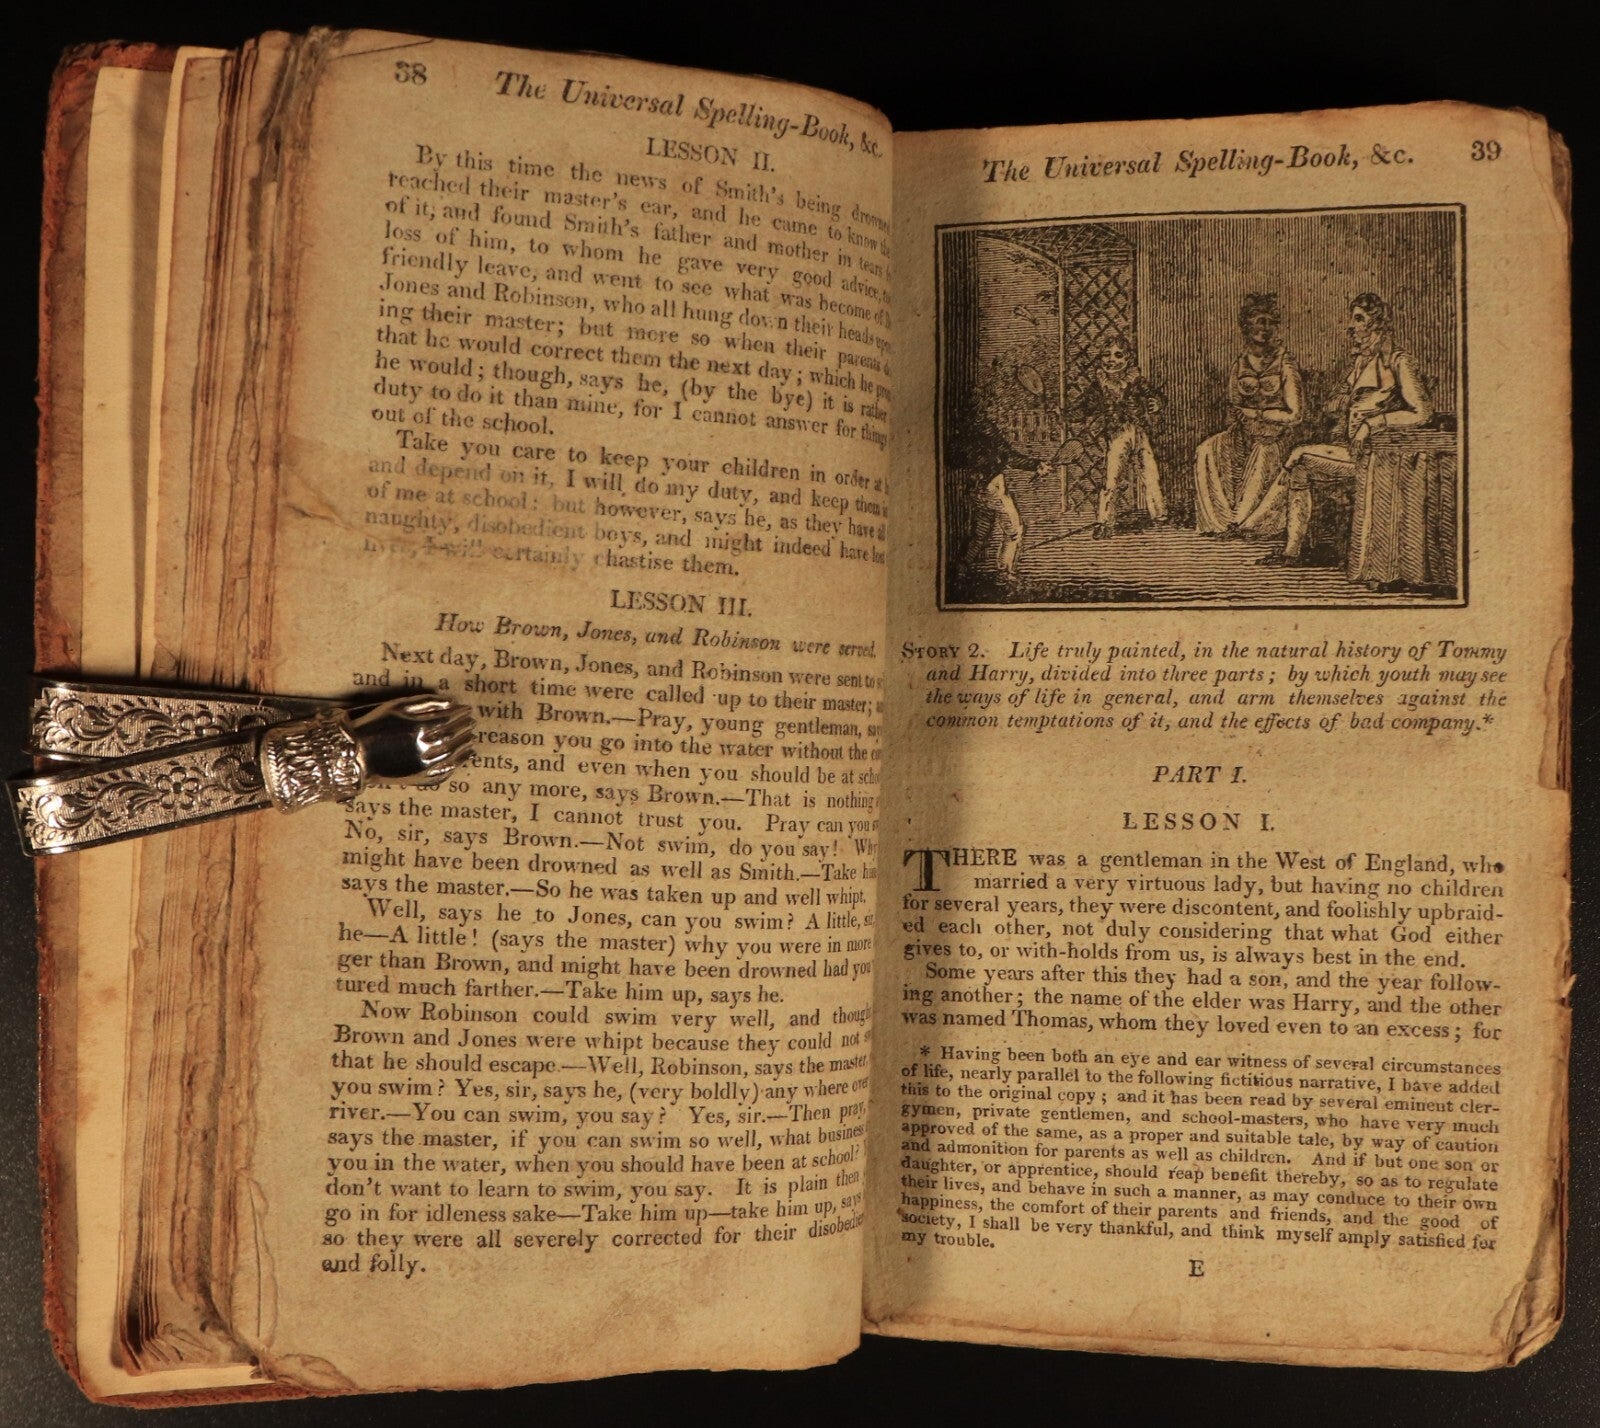 38
The Universal Spelling-Book, &c.
LESSON II.
By this time the news of Smith's being drowned
reached their master's ear, and he came to know the
of it, and found Smith's father and mother in tears
loss of him, to whom he gave very good advice,
friendly leave, and went to see what was become of
Jones and Robinson, who all hung down their heads
ing their master; but more so when their parents
that he would correct them the next day; which he
he would; though, says he, (by the bye) it is rather
duty to do it than mine, for I cannot answer for things
out of the school.
Take you care to keep your children in order at
and depend on it, I will do my duty, and keep them
of me at school: but however, says he, as they have
naughty, disobedient boys, and might indeed have
I will certainly chastise them.
LESSON III.
How Brown, Jones, and Robinson were served.
Next day, Brown, Jones, and Robinson were sent to
and in a short time were called up to their master;
with Brown.—Pray, young gentleman,
reason you go into the water without the
and even when you should be at
so any more, says Brown.—That is nothing
says the master, I cannot trust you. Pray can you
No, sir, says Brown.—Not swim, do you say!
might have been drowned as well as Smith.—Take
says the master.—So he was taken up and well whipt.
Well, says he to Jones, can you swim? A little,
he—A little! (says the master) why you were in more
ger than Brown, and might have been drowned had you
tured much farther.—Take him up, says he.
Now Robinson could swim very well, and
Brown and Jones were whipt because they could not
that he should escape.—Well, Robinson, says the master
you swim? Yes, sir, says he, (very boldly) any where over
river.—You can swim, you say? Yes, sir.—Then pray,
says the master, if you can swim so well, what business
you in the water, when you should have been at school?
don't want to learn to swim, you say. It is plain then
go in for idleness sake—Take him up—take him up, says
so they were all severely corrected for their
and folly.
The Universal Spelling-Book, &c. 39
STORY 2. Life truly painted, in the natural history of Tommy
and Harry, divided into three parts; by which youth may see
the ways of life in general, and arm themselves against the
common temptations of it, and the effects of bad company.*
PART I.
LESSON I.
THERE was a gentleman in the West of England, who
married a very virtuous lady, but having no children
for several years, they were discontent, and foolishly upbraid-
ed each other, not duly considering that what God either
gives to, or with-holds from us, is always best in the end.
Some years after this they had a son, and the year follow-
ing another; the name of the elder was Harry, and the other
was named Thomas, whom they loved even to an excess; for
* Having been both an eye and ear witness of several circumstances
of life, nearly parallel to the following fictitious narrative, I have added
this to the original copy; and it has been read by several eminent cler-
gymen, private gentlemen, and school-masters, who have very much
approved of the same, as a proper and suitable tale, by way of caution
and admonition for parents as well as children. And if but one son or
daughter, or apprentice, should reap benefit thereby, so as to regulate
their lives, and behave in such a manner, as may conduce to their own
happiness, the comfort of their parents and friends, and the good of
society, I shall be very thankful, and think myself amply satisfied for
my trouble.
E